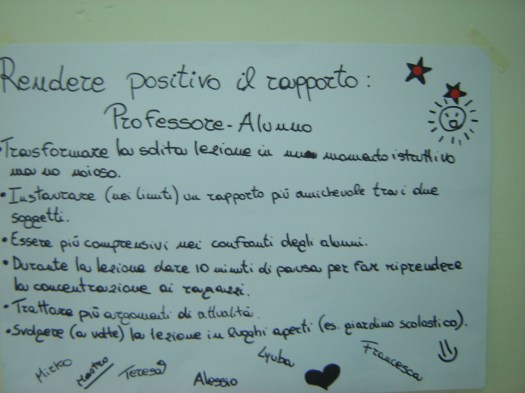 Rendere positivo il rapporto:
Professore-Alunno
•Trasformare la solita lezione in momento istruttivo
ma no noioso.
•Instaurare (nei limiti) un rapporto più amichevole tra i due
soggetti.
•Essere più comprensivi nei confronti degli alunni.
•Durante la lezione dare 10 minuti di pausa per far riprendere
la concentrazione ai ragazzi.
•Trattare più argomenti di attualità.
•Svolgere (a volte) la lezione in luoghi aperti (es. giardino scolastico).
Mirko
Mastro
Teresa
Alessio
Lyuba
Francesca